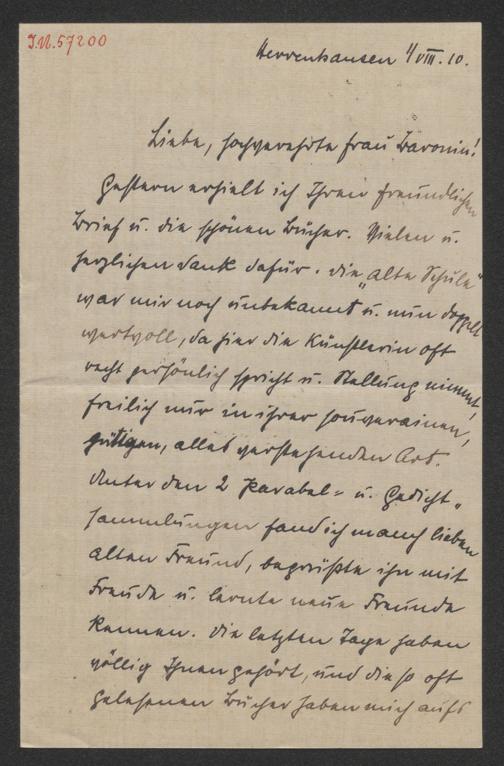 J.N. 57200
Herrenhausen 4/VIII. 10.
Liebe, hochverehrte Frau Baronin!
Gestern erhielt ich Ihren freundlichen
Brief u. die schönen Bücher. Vielen u.
herzlichen Dank dafür. Die „Alte Schule"
war mir noch unbekannt u. nun doppelt
wertvoll, da hier die Künstlerin oft
recht persönlich spricht u. Stellung nimmt,
freilich nur in ihrer souverainen,
gütigen, alles verstehenden Art.
Unter den 2 Parabel= u. Gedicht„
sammlungen fand ich manch lieben
alten Freund, begrüßte ihn mit
Freude u. lernte neue Freunde
kennen. Die letzten Tage haben
völlig Ihnen gehört, und die so oft
gelesenen Bücher haben mich aufs